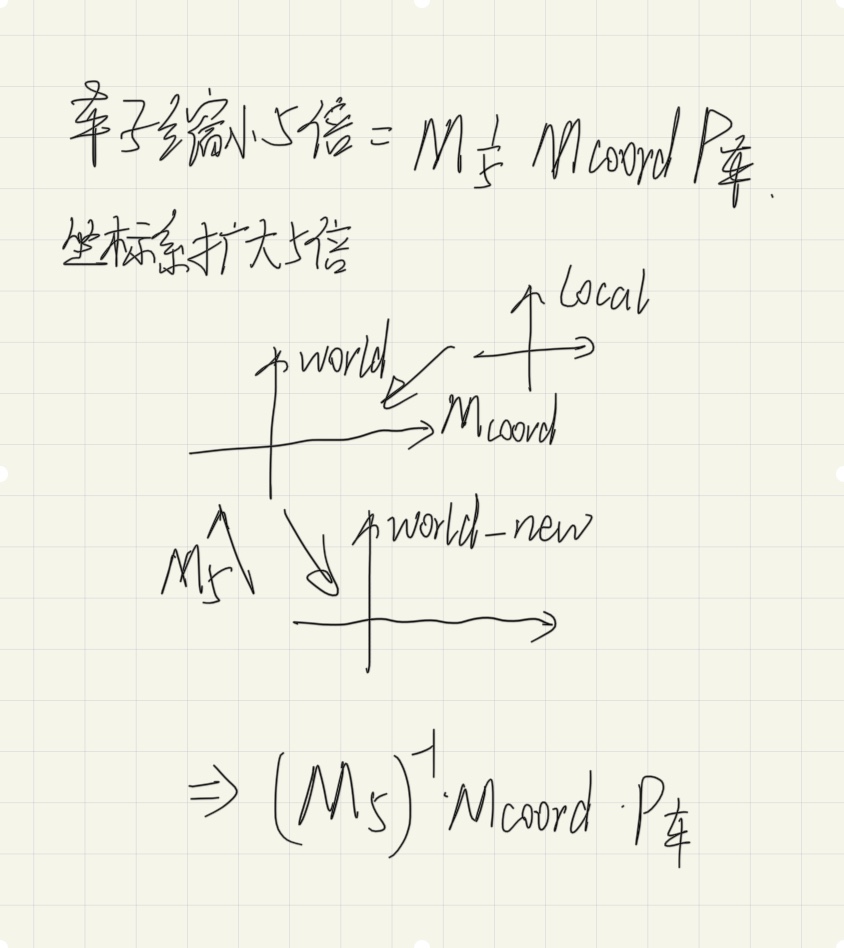 车子缩小5倍 = M 1/5 Mcoord P车.
坐标系扩大5倍
Local
world
Mcoord
world_new
M5
⇒ (M5)⁻¹ · Mcoord · P车